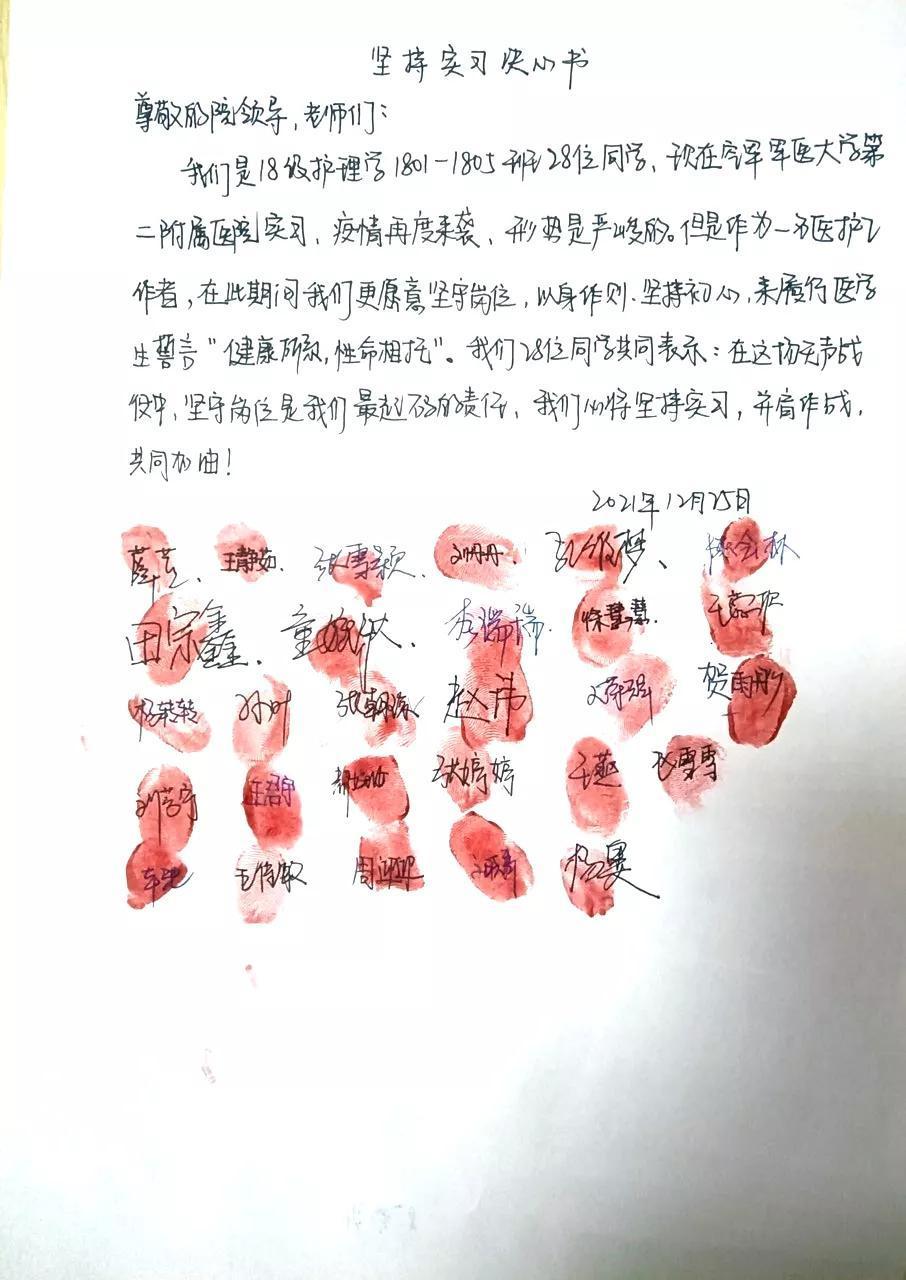 坚持实习决心书
尊敬的院领导,老师们:
我们是18级护理学1801-1805班28位同学、现在空军军医大学第
二附属医院实习、疫情再度来袭、形势是严峻的。但是作为一名医护工
作者,在此期间我们更愿意坚守岗位,以身作则、坚持初心,来履行医学
生誓言"健康所系,性命相托"。我们28位同学共同表示:在这场无声战
役中,坚守岗位是我们最起码的责任、我们仍将坚持实习,并肩作战,
共同加油!
2021年12月25日
薛芸、王静茹、张雪颖、刘丹丹、
田宗鑫、童 、李瑞瑞、徐慧慧、王
杨转转 孙叶 张 赵 贺雨彤
刘 王 郝 张婷婷 王燕 赵雪雪
王 周 杨旻